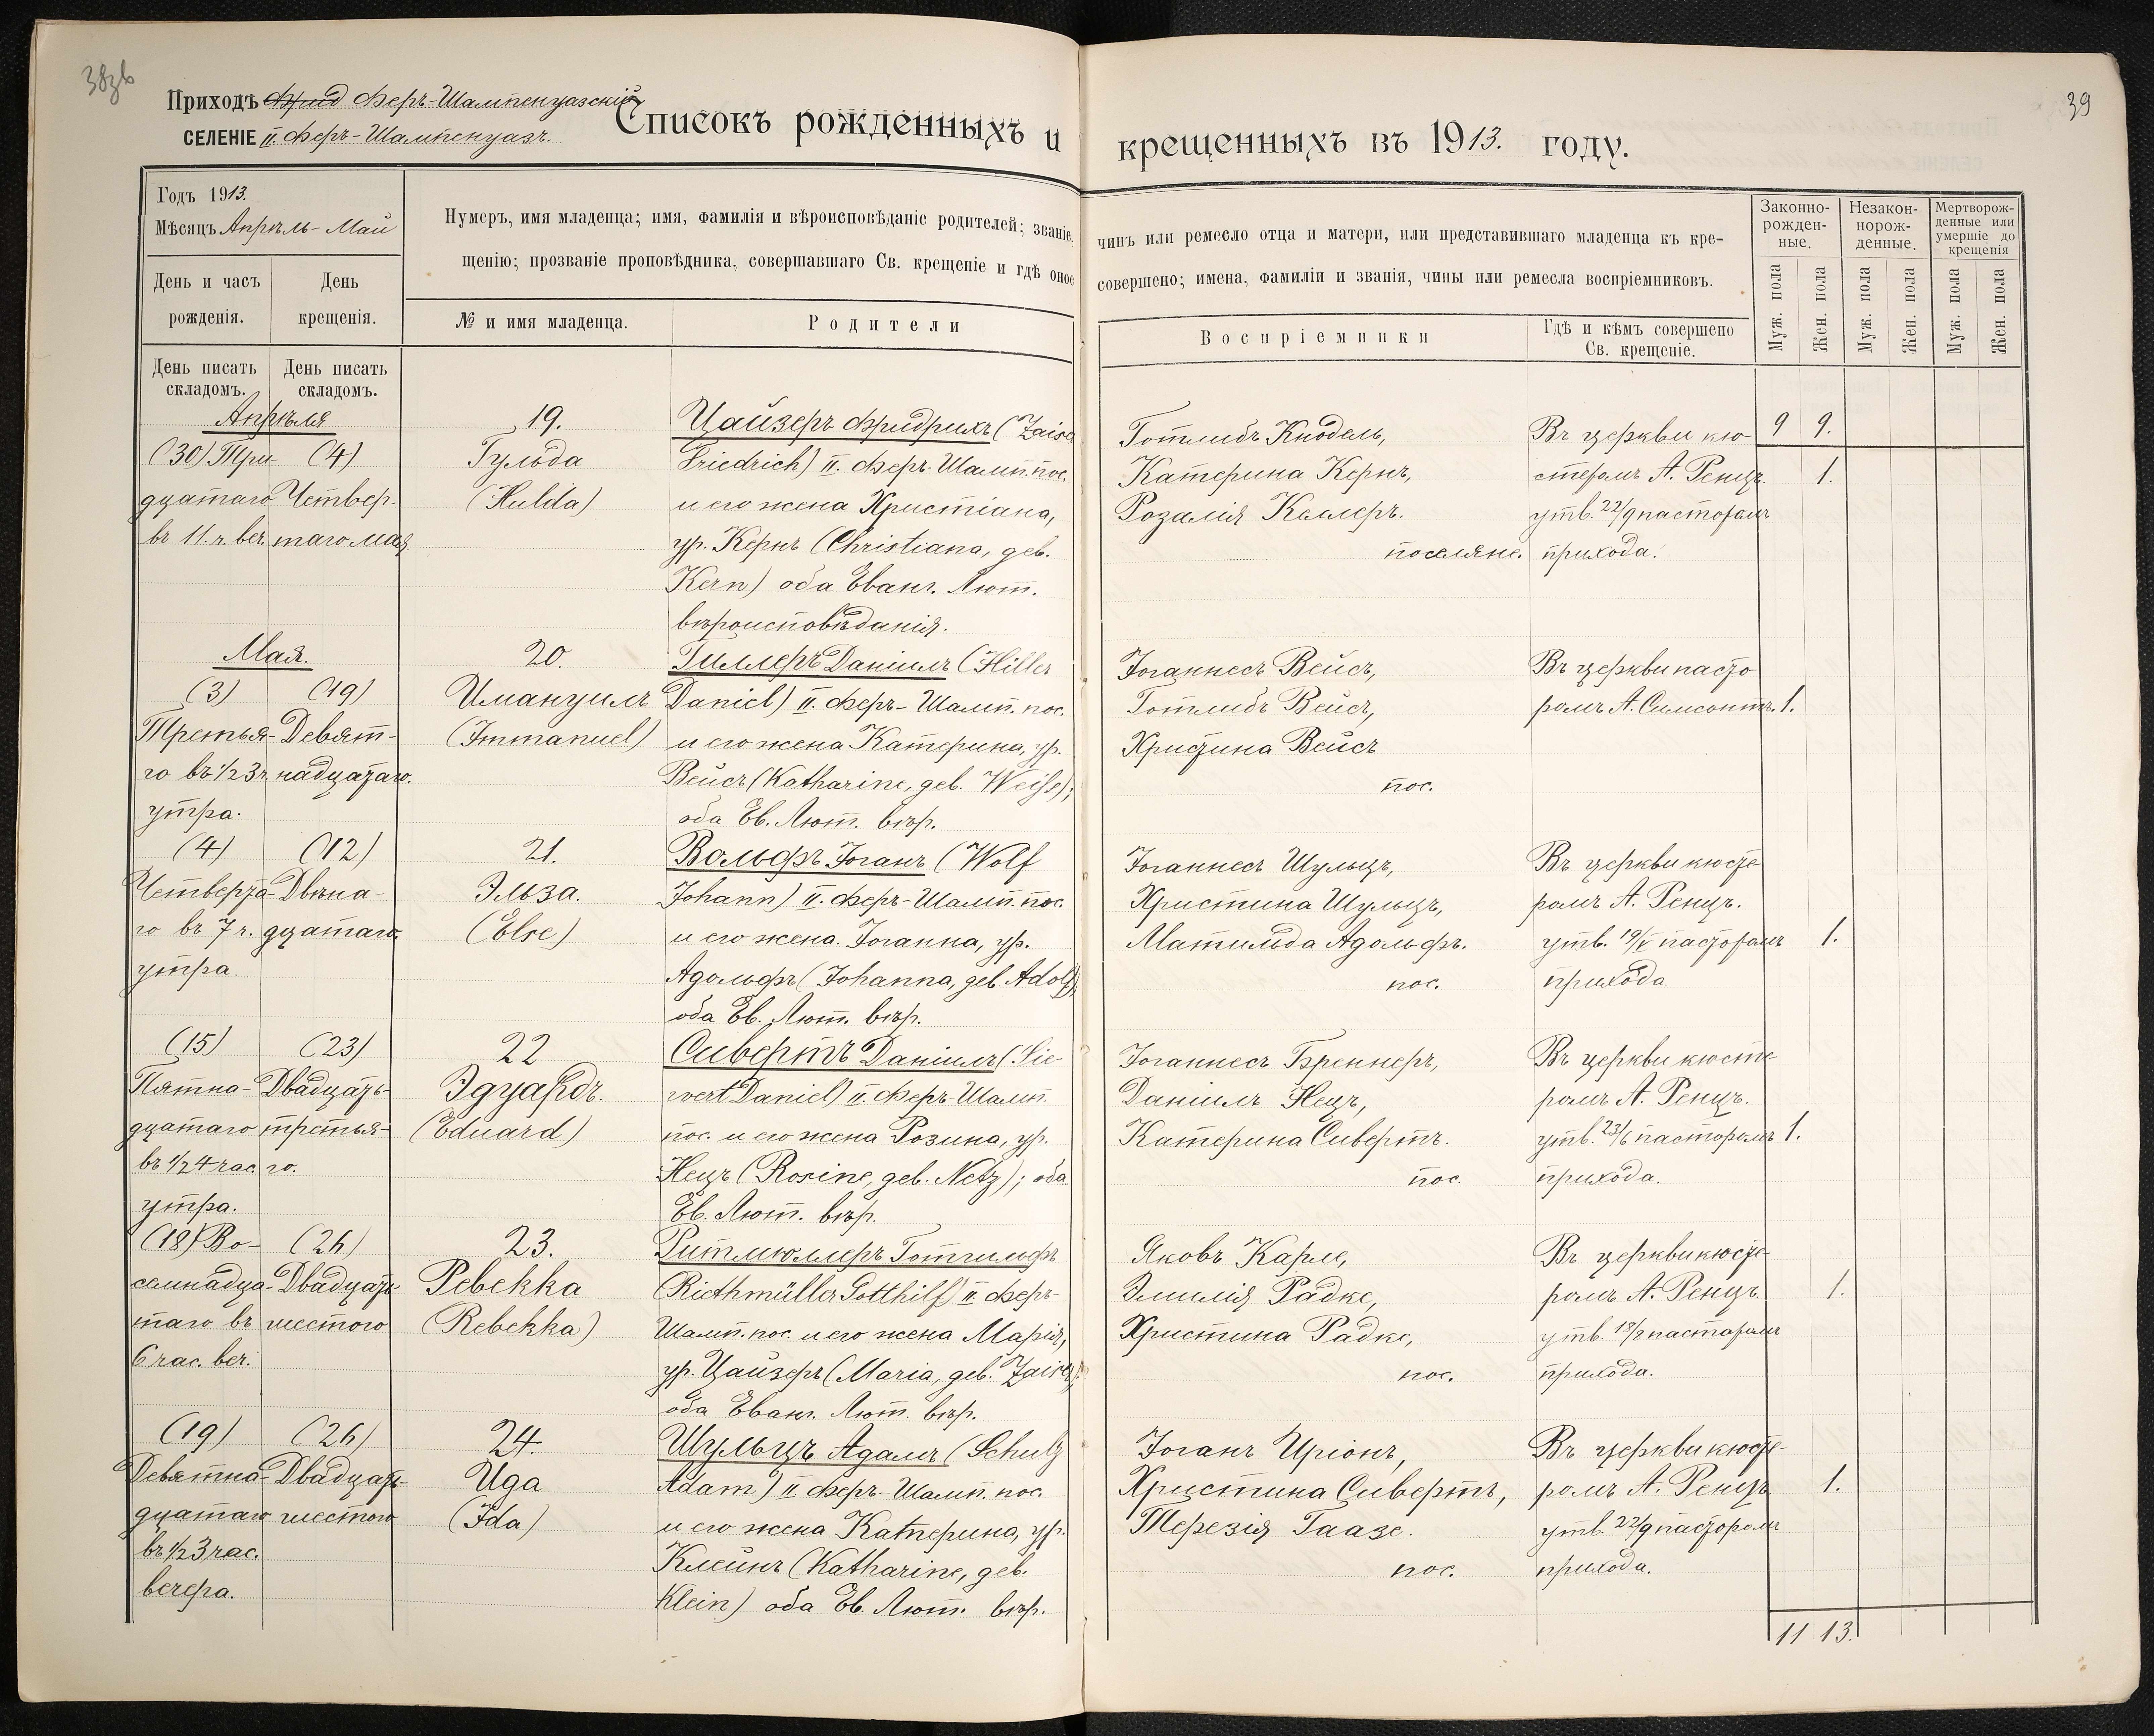 38зв
39
Приходъ Феръ-Шампенуазскій
СЕЛЕНІЕ II. Феръ-Шампенуазъ.
Списокъ рожденныхъ и крещенныхъ въ 1913. году.
Годъ 1913.
Мѣсяцъ Апрѣль - Май
День и часъ рожденія.
День крещенія.
Нумеръ, имя младенца; имя, фамилія и вѣроисповѣданіе родителей; званіе, чинъ или ремесло отца и матери, или представившаго младенца къ кре-
щенію; прозваніе проповѣдника, совершавшаго Св. крещеніе и гдѣ оное совершено; имена, фамиліи и званія, чины или ремесла воспріемниковъ.
№ и имя младенца.
Родители
Воспріемники
Гдѣ и кѣмъ совершено
Св. крещеніе.
Законно-
рожден-
ные.
Незакон-
норож-
денные.
Мертворож-
денные или
умершіе до
крещенія
Муж. пола
Жен. пола
Муж. пола
Жен. пола
Муж. пола
Жен. пола
День писать
складомъ.
День писать
складомъ.
9 9.
Апрѣля
(30) Три-
дцатаго
въ 11. ч. веч.
(4)
Четвер-
таго мая
19.
Гульда
(Hulda)
Цайзеръ Фридрихъ (Zaiser
Friedrich) II. Феръ-Шамп. пос.
и его жена Христіана,
ур. Кернъ (Christiana, geb.
Kern) оба Еванг. Лют.
вѣроисповѣданія.
Готлибъ Кнодель,
Катерина Кернъ,
Розалія Келлеръ.
поселяне.
Въ церкви кю-
стеромъ А. Ренцъ.
утв. 22/9 пасторомъ
прихода.
1.
Мая.
(3)
Третья-
го въ 1/2 3 ч.
утра.
(19)
Девят-
надцатаго.
20.
Имануилъ
(Immanuel)
Гиллеръ Даніилъ (Hiller
Daniel) II. Феръ-Шамп. пос.
и его жена Катерина, ур.
Вейсъ (Katharine, geb. Weiss);
оба Ев. Лют. вѣр.
Іоганнесъ Вейсъ,
Готлибъ Вейсъ,
Христина Вейсъ
пос.
Въ церкви пасто
ромъ А. Симсонъ.
1.
(4)
Четверта-
го въ 7 ч.
утра.
(12)
Двѣна-
дцатаго.
21.
Эльза.
(Else)
Вольфъ Іоганъ (Wolf
Johann) II. Феръ-Шамп. пос.
и его жена Іоганна, ур.
Адольфъ (Johanna, geb. Adolf),
оба Ев. Лют. вѣр.
Іоганнесъ Шульцъ,
Христина Шульцъ,
Матильда Адольфъ.
пос.
Въ церкви кюсте
ромъ А. Ренцъ.
утв. 19/V пасторомъ
прихода
1.
(15)
Пятна-
дцатаго
въ 1/2 4 час.
утра.
(23)
Двадцать-
третья-
го.
22
Эдуардъ.
(Eduard)
Сивертъ Даніилъ (Sie-
wert Daniel) II. Феръ-Шамп.
пос. и его жена Розина, ур.
Нецъ (Rosine, geb. Netz); оба
Ев. Лют. вѣр.
Іоганнесъ Бреннеръ,
Даніилъ Нецъ,
Катерина Сивертъ.
пос.
Въ церкви кюсте
ромъ А. Ренцъ.
утв. 23/6 пасторомъ
прихода.
1.
(18) Во-
семнадца-
таго въ
6 час. веч.
(26)
Двадцать-
шестого
23.
Ребекка
(Rebekka)
Ритмюллеръ Готгильфъ
(Riethmüller Gotthilf) II. Феръ-
Шамп. пос. и его жена Марія,
ур. Цайзеръ (Maria, geb. Zaiser);
оба Еванг. Лют. вѣр.
Яковъ Карле,
Эмилія Радке,
Христина Радке,
пос.
Въ церкви кюсте-
ромъ А. Ренцъ.
утв. 18/8 пасторомъ
прихода.
1.
(19)
Девятна-
дцатаго
въ 1/2 3 час.
вечера.
(26)
Двадцать-
шестого
24.
Ида
(Ida)
Шульцъ Адамъ (Schulz
Adam) II Феръ-Шамп. пос.
и его жена Катерина, ур.
Клейнъ (Katharine, geb.
Klein) оба Ев. Лют. вѣр.
Іоганъ Иріонъ,
Христина Сивертъ,
Терезія Гаазе.
пос.
Въ церкви кюсте-
ромъ А. Ренцъ
утв. 22/9 пасторомъ
прихода.
1.
11 13.